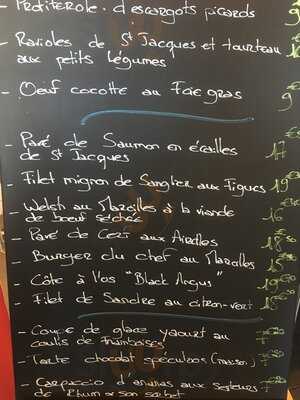 - Profiterole d'escargots picards 9
- Ravioles de St Jacques et tourteau
aux petits légumes
- Oeuf cocotte au Foie gras 9€
- Pavé de Saumon en écailles
de St Jacques 17€
- Filet mignon de Sanglier aux Figues 19€
- Welsh au Maroilles à la viande
de boeuf séchée 16€
- Pavé de Cerf aux Airelles 18€50
- Burger du chef au Maroilles 15€
- Côte à l'os "Black Angus"
- Filet de Sandre au citron-vert
- Coupe de glace yaourt au
coulis de framboises
- Tarte chocolat spéculoos (maison)
- Carpaccio d'ananas aux
de Rhum et son sorbet